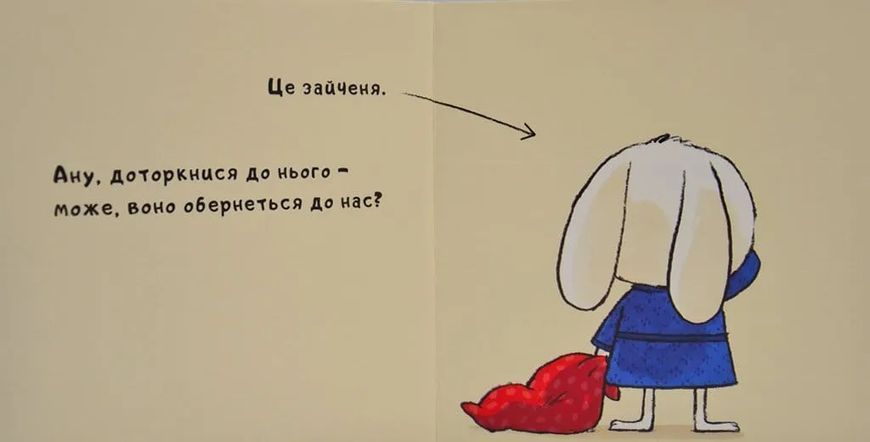 Це зайченя.
Ану, доторкнися до нього –
може, воно обернеться до нас?